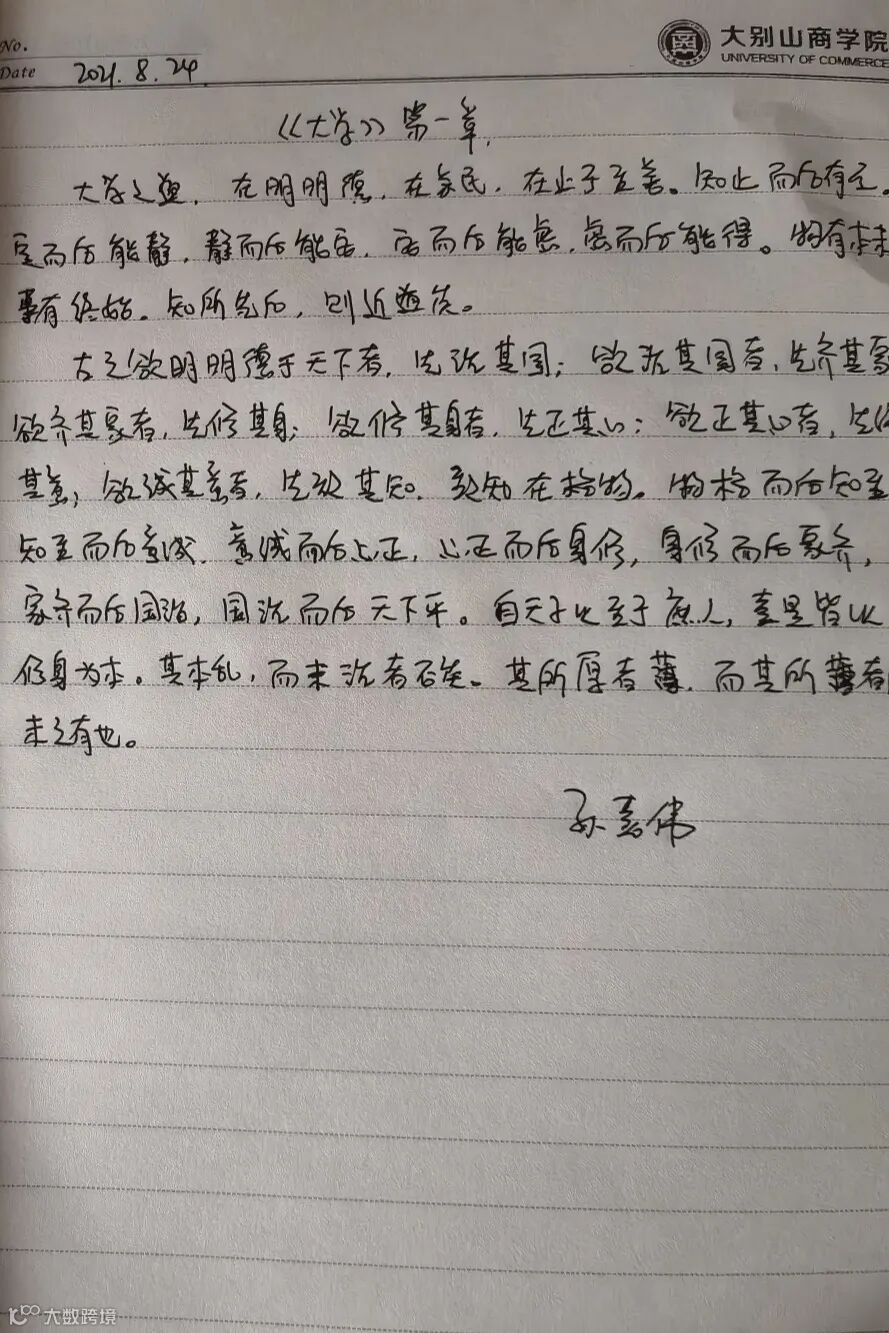 大别山商学院
UNIVERSITY OF COMMERCE
No.
Date 2021.8.24
《大学》第一章.
大学之道，在明明德，在亲民，在止于至善。知止而后有定。
定而后能静，静而后能安，安而后能虑，虑而后能得。物有本末
事有终始。知所先后，则近道矣。
古之欲明明德于天下者，先治其国；欲治其国者，先齐其家
欲齐其家者，先修其身；欲修其身者，先正其心；欲正其心者，先
其意；欲诚其意者，先致其知，致知在格物。物格而后知至
知至而后意诚，意诚而后心正，心正而后身修，身修而后家齐，
家齐而后国治，国治而后天下平。自天子以至于庶人，壹是皆以
修身为本。其本乱，而末治者否矣。其所厚者薄，而其所薄者
未之有也。
孙嘉伟
大数跨境